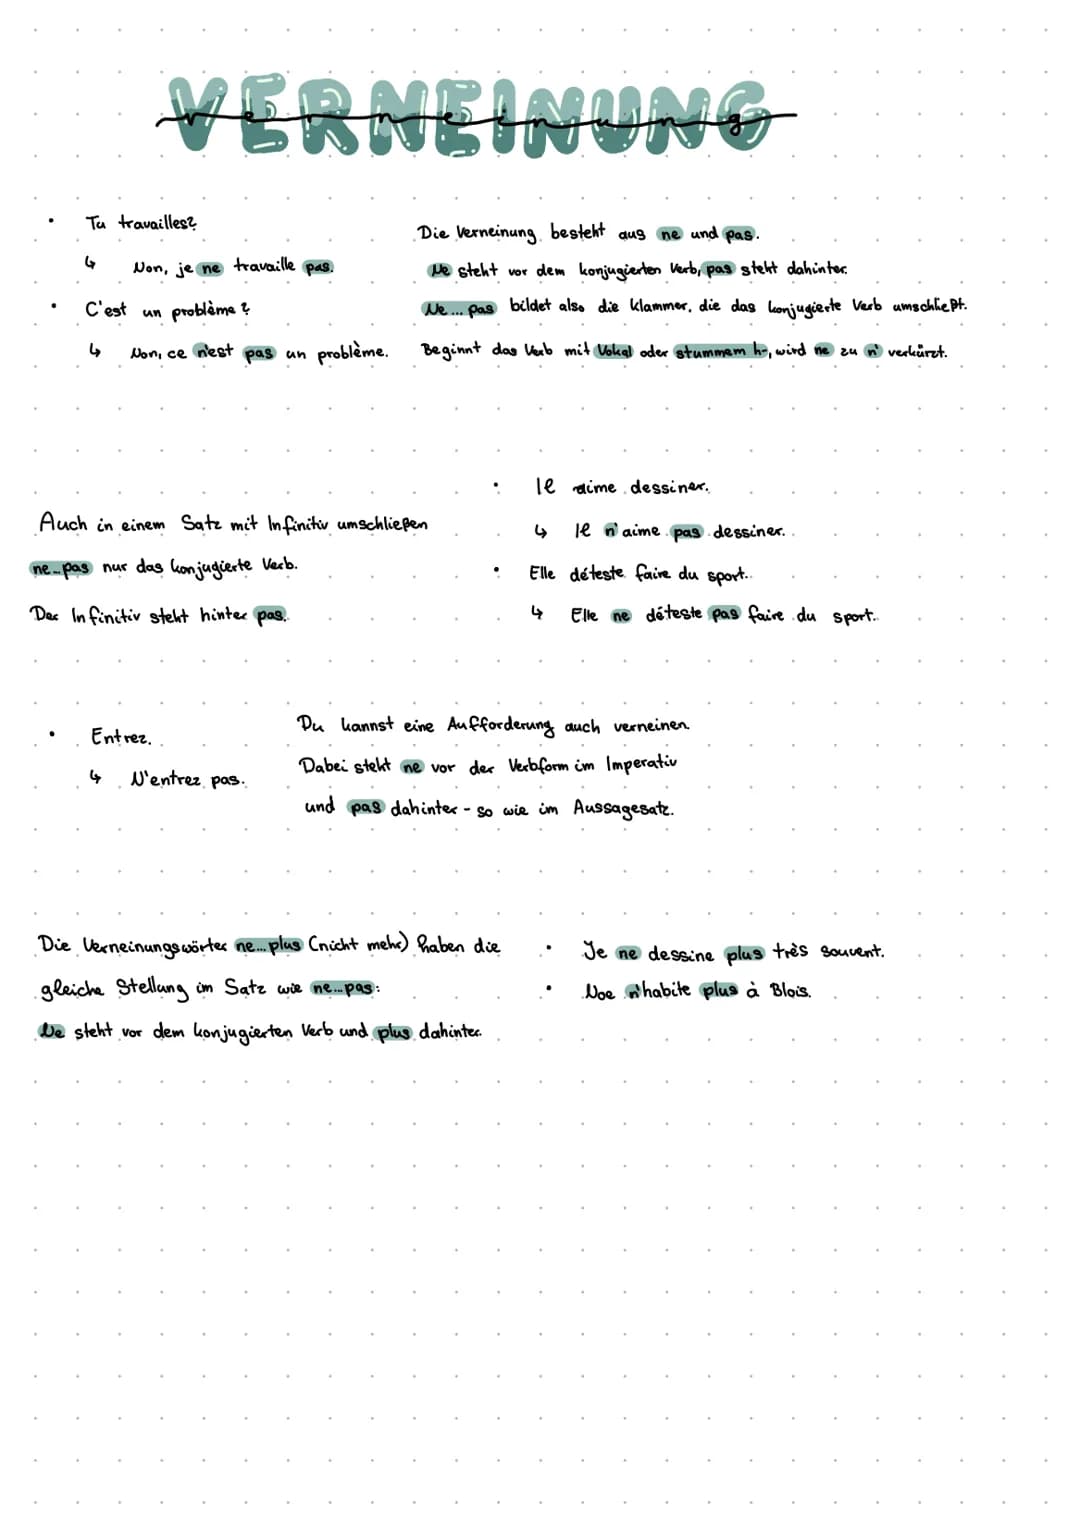 VERNEINUNG
verneinung
Tu travailles?
↳ Non, je ne travaille pas.
C'est un problème?
↳ Non, ce n'est pas un problème.
Die Verneinung besteht aus ne und pas.
Ne steht vor dem konjugierten Verb, pas steht dahinter.
Ne ... pas bildet also die Klammer, die das konjugierte Verb umschließt.
Beginnt das Verb mit Vokal oder stummem h-, wird ne zu n' verkürzt.
Auch in einem Satz mit Infinitiv umschließen
ne...pas nur das konjugierte Verb.
Der Infinitiv steht hinter pas.
Il aime dessiner.
↳ Il n'aime pas dessiner.
Elle déteste faire du sport.
↳ Elle ne déteste pas faire du sport.
Entrez.
↳ N'entrez pas.
Du kannst eine Aufforderung auch verneinen.
Dabei steht ne vor der Verbform im Imperativ
und pas dahinter - so wie im Aussagesatz.
Die Verneinungswörter ne...plus (nicht mehr) haben die
gleiche Stellung im Satz wie ne...pas:
Ne steht vor dem konjugierten Verb und plus dahinter.
Je ne dessine plus très souvent.
Noe n'habite plus à Blois.